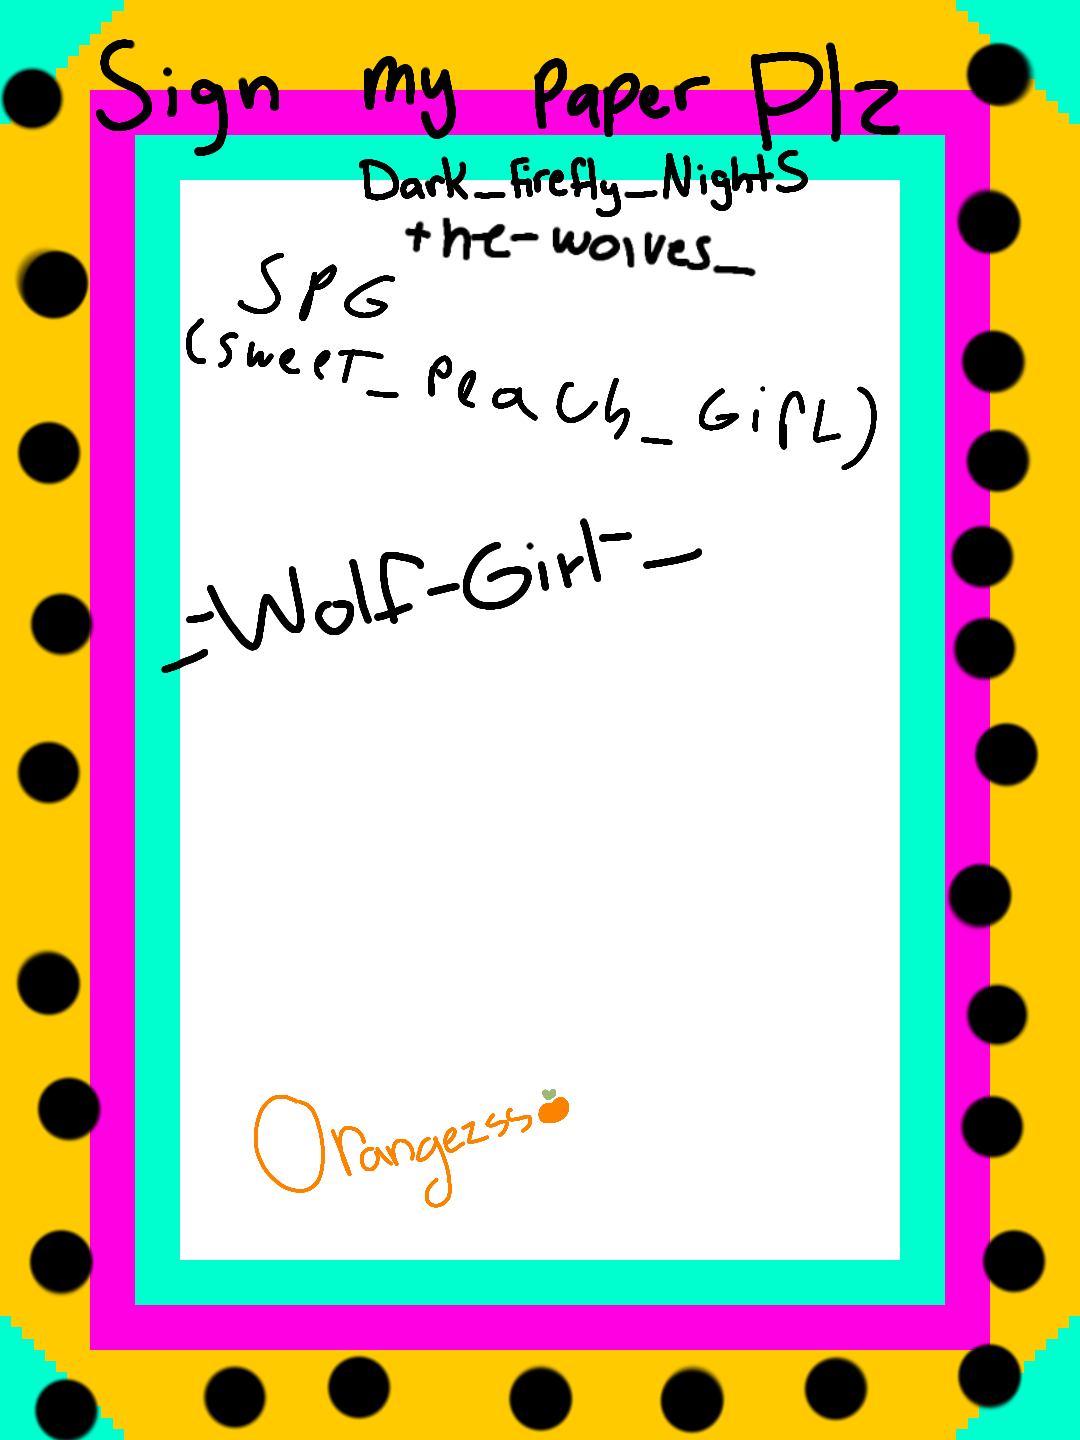 Sign my Paper Plz
Dark_firefly_Nights
the-wolves_
SPG
(sweet_Peach_Girl)
_-Wolf-Girl-_
Orangezss